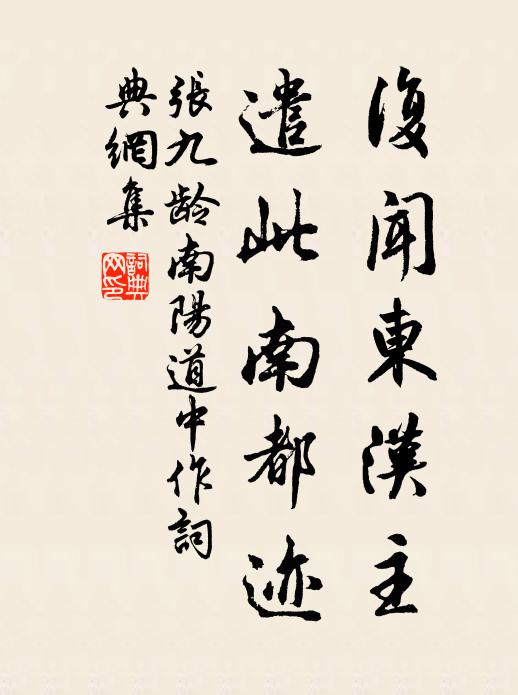 復聞東漢主
遣此南都迹
張九龄南陽道中作詞
典網集
詞典网印